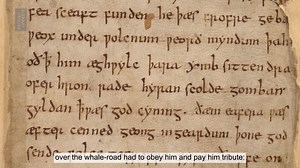 sceaft funden he þæs frofre geba
ƿeox under ƿolcnum ƿeorð myndum þah
oð ꝥ him æghƿylc þara ymb sittendra
ofer hron rade hyran scolde gomban
gyldan ꝥ ƿæs god cyning. ðæm eafera ƿæs
æfter cenned geong in geardum þone god
over the whale-road had to obey him and pay him tribute:
sende